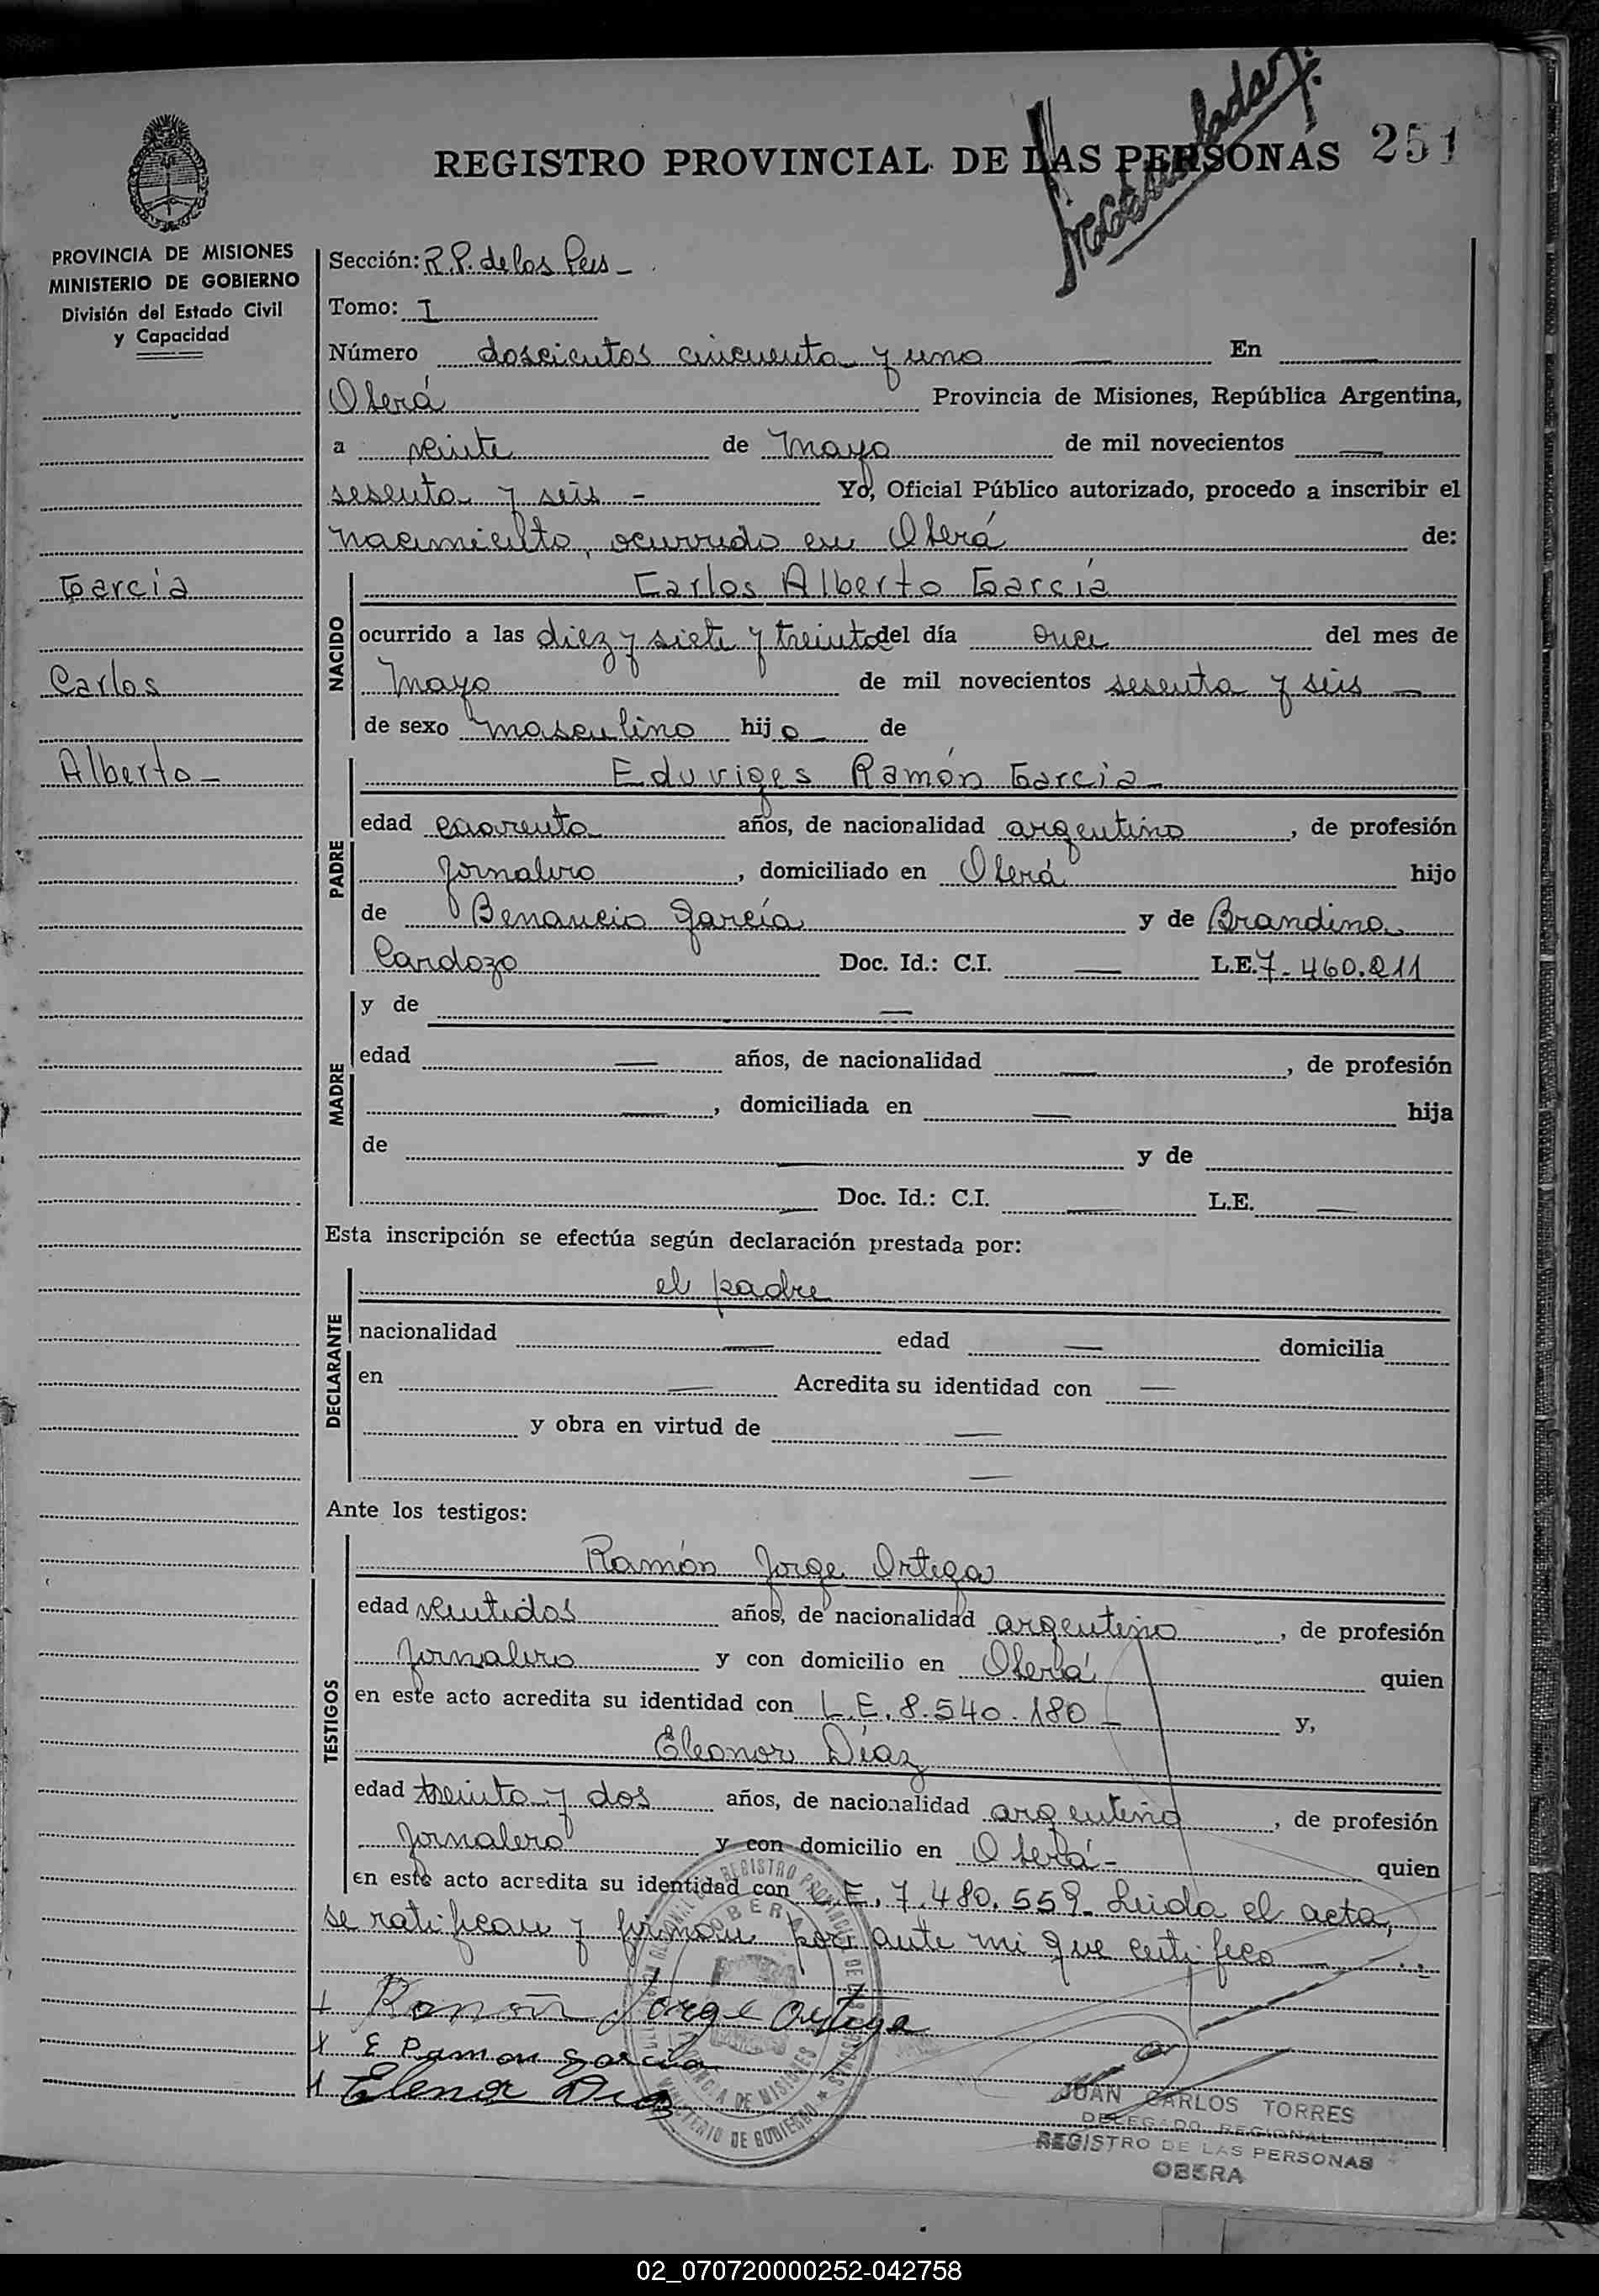 REGISTRO PROVINCIAL DE LAS PERSONAS 251
PROVINCIA DE MISIONES
MINISTERIO DE GOBIERNO
División del Estado Civil
y Capacidad
García
Carlos
Alberto -
Sección: R.P. de los Pers -
Tomo: I
Número doscientos cincuenta y uno — En —
Oberá Provincia de Misiones, República Argentina,
a veinte de Mayo de mil novecientos —
sesenta y seis - Yo, Oficial Público autorizado, procedo a inscribir el
nacimiento, ocurrido en Oberá de:
NACIDO
Carlos Alberto García
ocurrido a las diez y siete y treinta del día once del mes de
Mayo de mil novecientos sesenta y seis —
de sexo masculino hijo — de
PADRE
Eduviges Ramón García -
edad cuarenta años, de nacionalidad argentino, de profesión
Jornalero, domiciliado en Oberá hijo
de Benancio García y de Brandina
Cardozo Doc. Id.: C.I. — L.E. 7.460.211
MADRE
y de —
edad — años, de nacionalidad —, de profesión
—, domiciliada en — hija
de — y de
— Doc. Id.: C.I. — L.E. —
Esta inscripción se efectúa según declaración prestada por:
DECLARANTE
el padre
nacionalidad — edad — domicilia
en — Acredita su identidad con —
y obra en virtud de —
—
Ante los testigos:
TESTIGOS
Ramón Jorge Ortega
edad veintidos años, de nacionalidad argentino, de profesión
Jornalero y con domicilio en Oberá quien
en este acto acredita su identidad con L.E. 8.540.180 - y,
Eleonor Díaz
edad treinta y dos años, de nacionalidad argentino, de profesión
Jornalero y con domicilio en Oberá - quien
en este acto acredita su identidad con L.E. 7.480.559. Leida el acta,
se ratifican y firman por ante mi que certifico —
Ramón Jorge Ortega
E Ramon Garcia
Elenor Diaz
REGISTRO PROVINCIAL DE LAS PERSONAS
OBERA
PROVINCIA DE MISIONES
MINISTERIO DE GOBIERNO
JUAN CARLOS TORRES
DELEGADO REGIONAL
REGISTRO DE LAS PERSONAS
OBERA
02_070720000252-042758